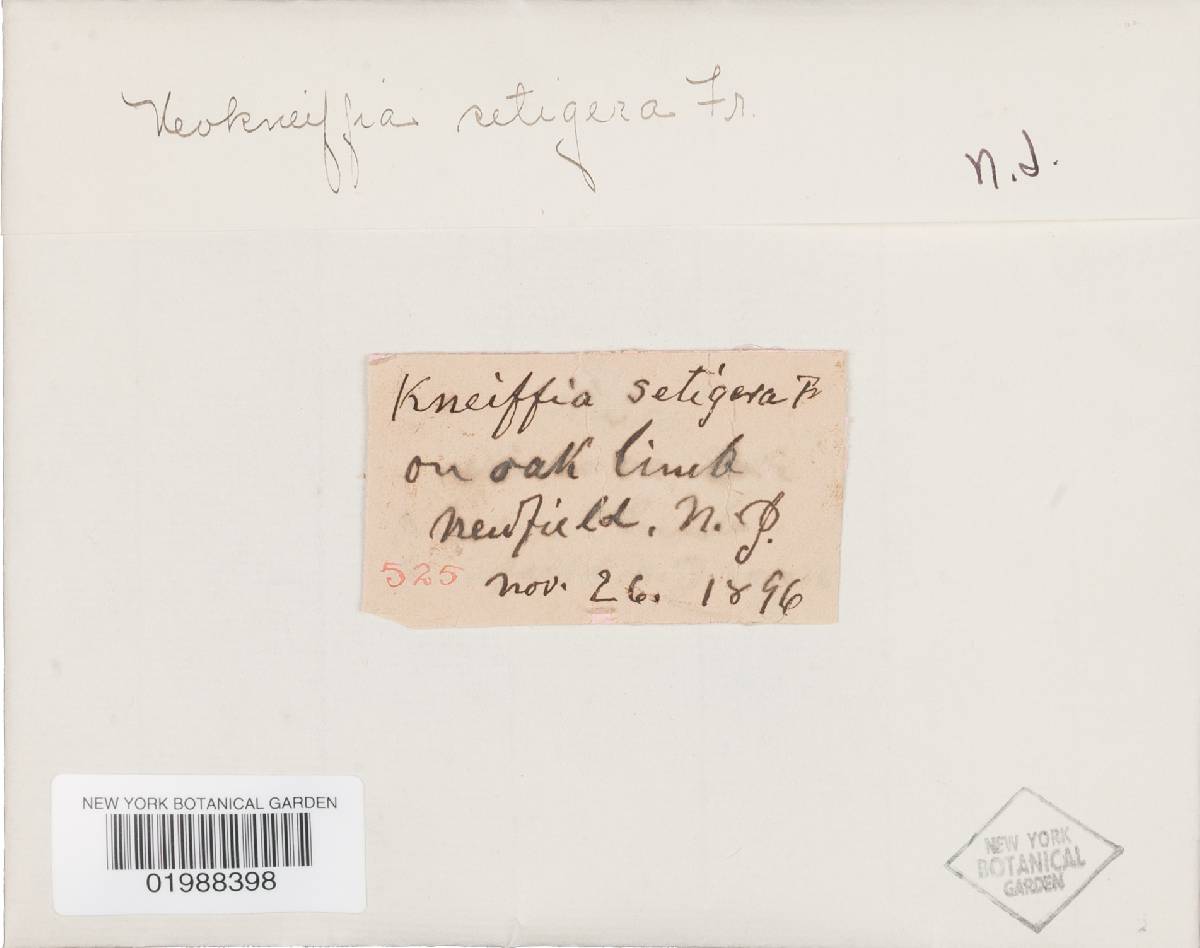 Neokneiffia setigera Fr.
N.J.
Kneiffia setigera Fr
on oak limb
Newfield, N.J.
525 Nov. 26. 1896
NEW YORK BOTANICAL GARDEN
01988398
NEW YORK
BOTANICAL
GARDEN